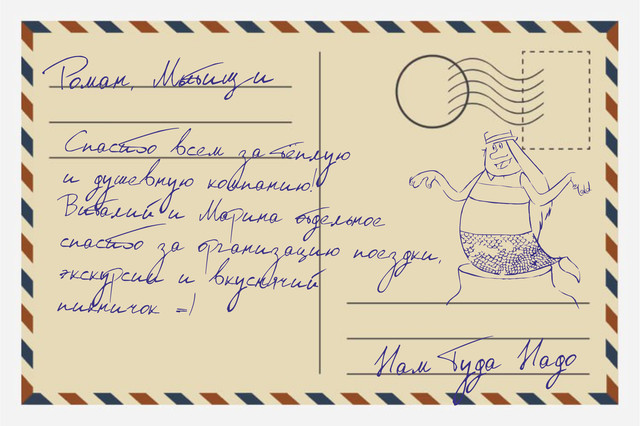 Роман, Мытищи
Спасибо всем за тёплую
и душевную компанию!
Виталий и Марина отдельное
спасибо за организацию поездки,
экскурсии и вкуснячий
пикничок =)
Нам Туда Надо